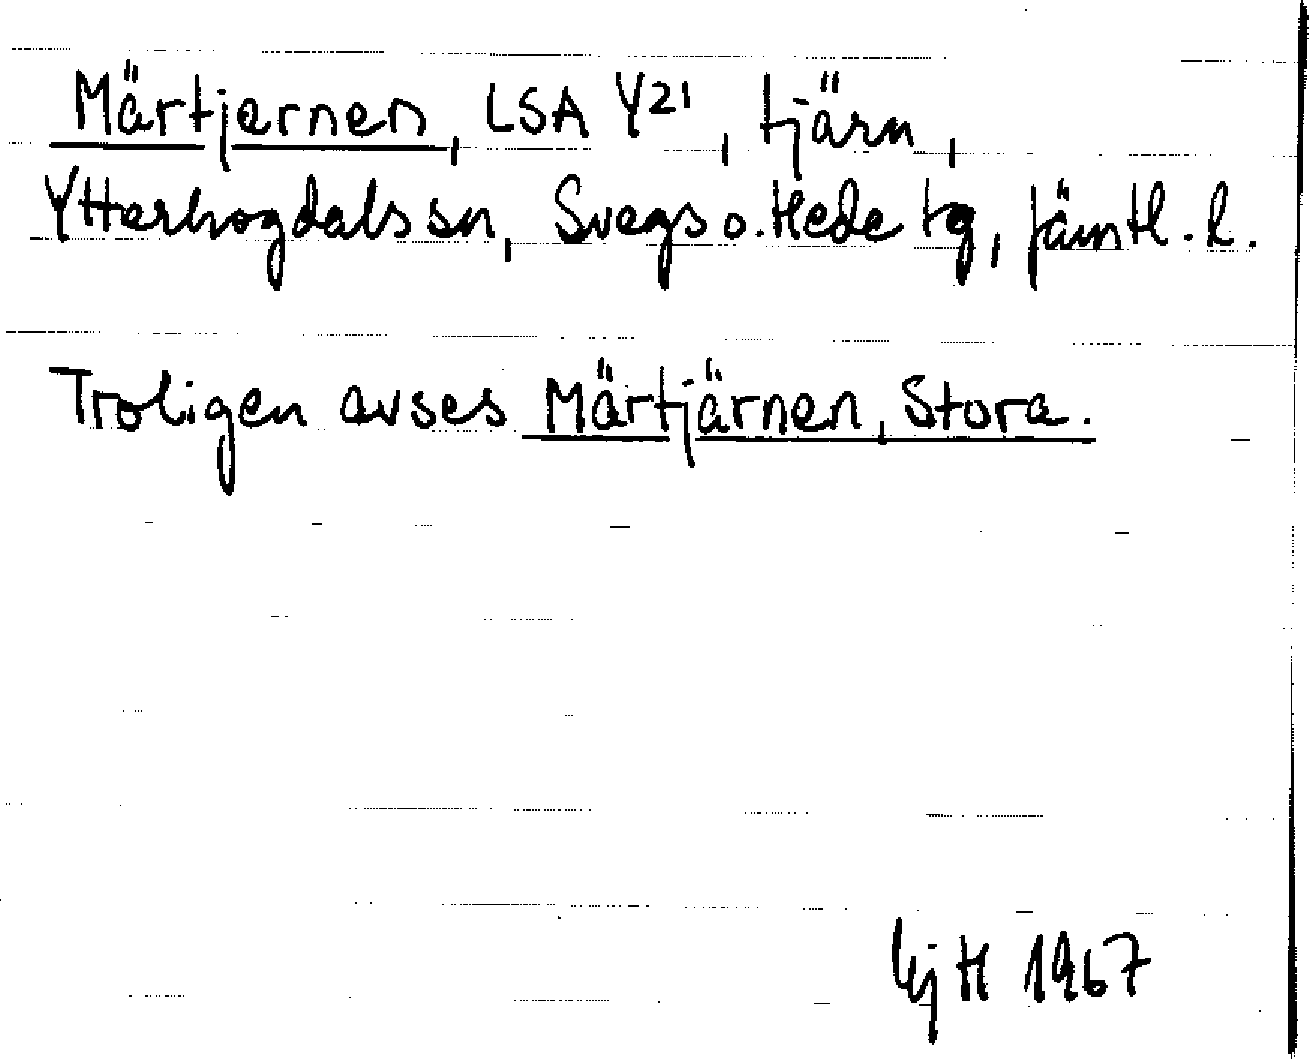 Märtjernen, LSA Y21, tjärn,
Ytterhogdals sn, Svegs o. Hede tg, Jämtl. l.
Troligen avses Märtjärnen, Stora.
H 1967